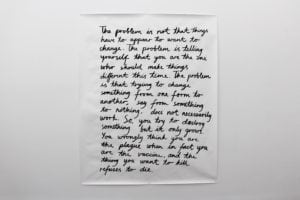 The problem is not that things
have to appear to want to
change. The problem is telling
yourself that you are the one
who should make things
different this time. The problem
is that trying to change
something from one form to
another, say from something
to nothing, does not necessarily
work. So, you try to destroy
something but it only grows.
You wrongly think you are
the plague when in fact you
are the vaccine, and the
thing you want to kill
refuses to die.